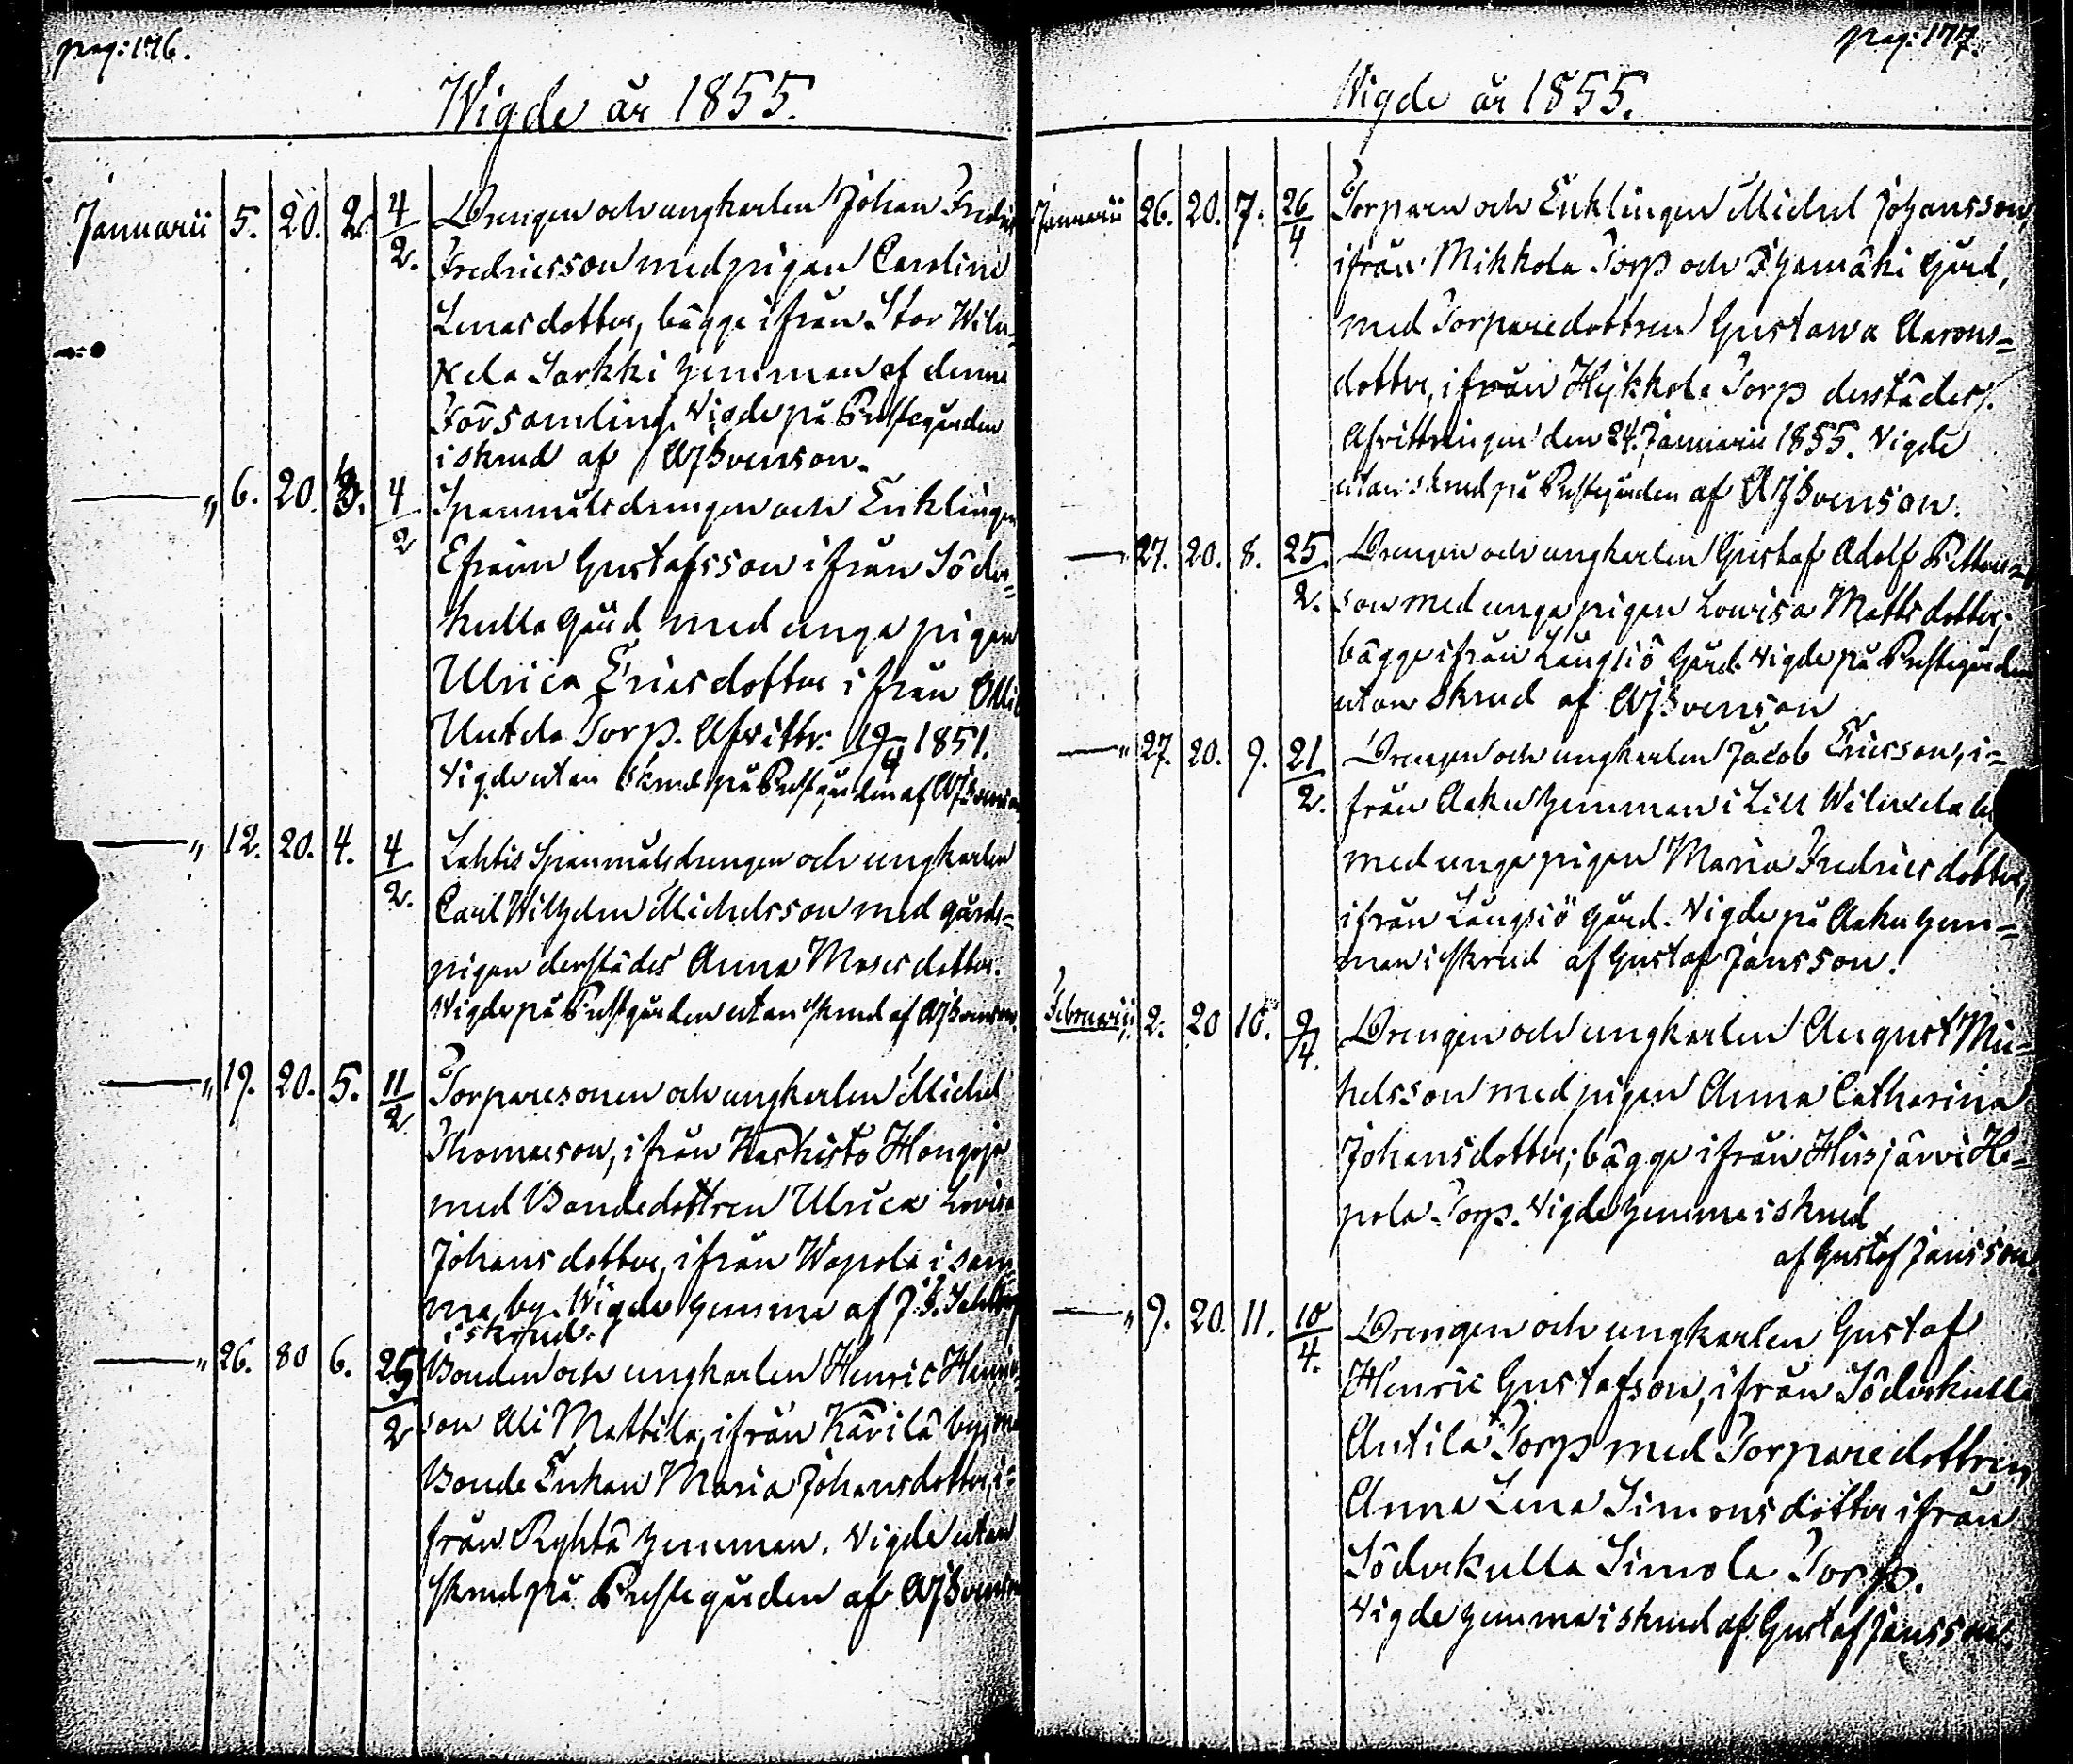 pag: 176.
Wigde år 1855.
Januarii 5. 20. 2. 4/2. Drengen och ungkarlen Johan Fredric
Fredricsson med pigan Carolina
Lenasdotter, bägge ifrån Stor Wilu-
xela Sarkki hemman af denna
Församling. Vigde på Prestegården
i skrud af AJSvenson.
—„ 6. 20. 3. 4/2 Spanmålsdrengen och Enklingen
Efraim Gustafsson ifrån Söder=
kulla Gård med unga pigan
Ulrica Ericsdotter ifrån
Untola Torp. Afwittr: 1851.
Vigde utan skrud på Prestgården af AJSvenson
—„ 12. 20. 4. 4/2. Lahtis Spanmålsdrengen och ungkarlen
Carl Wilhelm Michelsson med gårds=
pigan derstädes Anna Mosesdotter.
Vigde på Prestgården utan skrud af AJSvenson.
—„ 19. 20. 5. 11/2 Torparesonen och ungkarlen Michel
Thomasson, ifrån Karhisto Hongoja
med Bondedottren Ulrica Lovisa
Johansdotter, ifrån Wapola i sam=
ma by. Wigde hemma af J. F. Sahlberg
i skrud.
—„ 26. 80 6. 25/2 Bonden och ungkarlen Henric Henrics=
son Ali Mattila, ifrån Kärilä by, med
Bonde Enkan Maria Johansdotter, i=
från Ryhtä hemman. Vigde utan
skrud på Prestegården af AJSvenson
pag: 177.
Wigde år 1855.
Januarii 26. 20. 7. 26/4 Torparn och Enklingen Michel Johansson,
ifrån Mikkola Torp och Pyhamäki Gård,
med Torparedottren Gustava Aarons=
dotter, ifrån Hykkola Torp derstädes.
Afvittringen den 24. Januarii 1855. Vigde
utan skrud på Prestgården af AJSvenson.
—„ 27. 20. 8. 25/2. Drengen och ungkarlen Gustaf Adolf Petters=
son med unga pigan Lowisa Mattsdotter,
bägge ifrån Långsiö Gård. Vigde på Prestegården
utan skrud af AJSvenson
—„ 27. 20. 9. 21/2. Drengen och ungkarlen Jacob Ericsson, i=
från Aaku hemman i Lill Wiluxela by
med unga pigan Maria Fredricsdotter,
ifrån Långsiö Gård. Vigde på Aaku hem=
man i skrud af Gustaf Jansson.
Februarii. 2. 20 10. 2/4. Drengen och ungkarlen August Mic=
helsson med pigan Anna Catharina
Johansdotter; bägge ifrån Hirsjärvi He=
pola Torp. Vigde hemma i skrud
af Gustaf Jansson.
—„ 9. 20. 11. 10/4. Drengen och ungkarlen Gustaf
Henric Gustafson, ifrån Söderkulla
Antila Torp med Torparedottren
Anna Lena Simonsdotter ifrån
Söderkulla Simola Torp.
Vigde hemma i skrud af Gustaf Jansson.